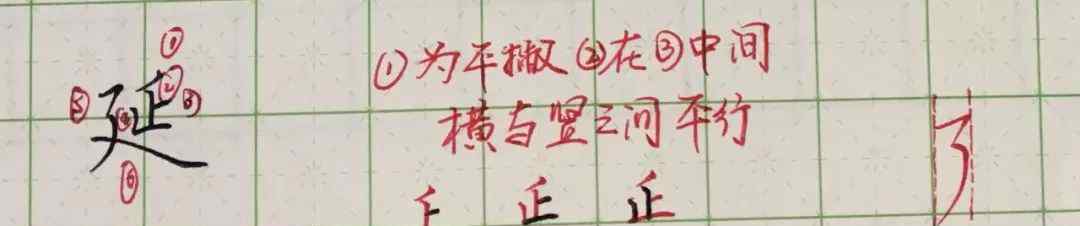 延 ① ② ③ ④ ⑤ ⑥
①为平撇②在③中间
横与竖之间平行
正 正